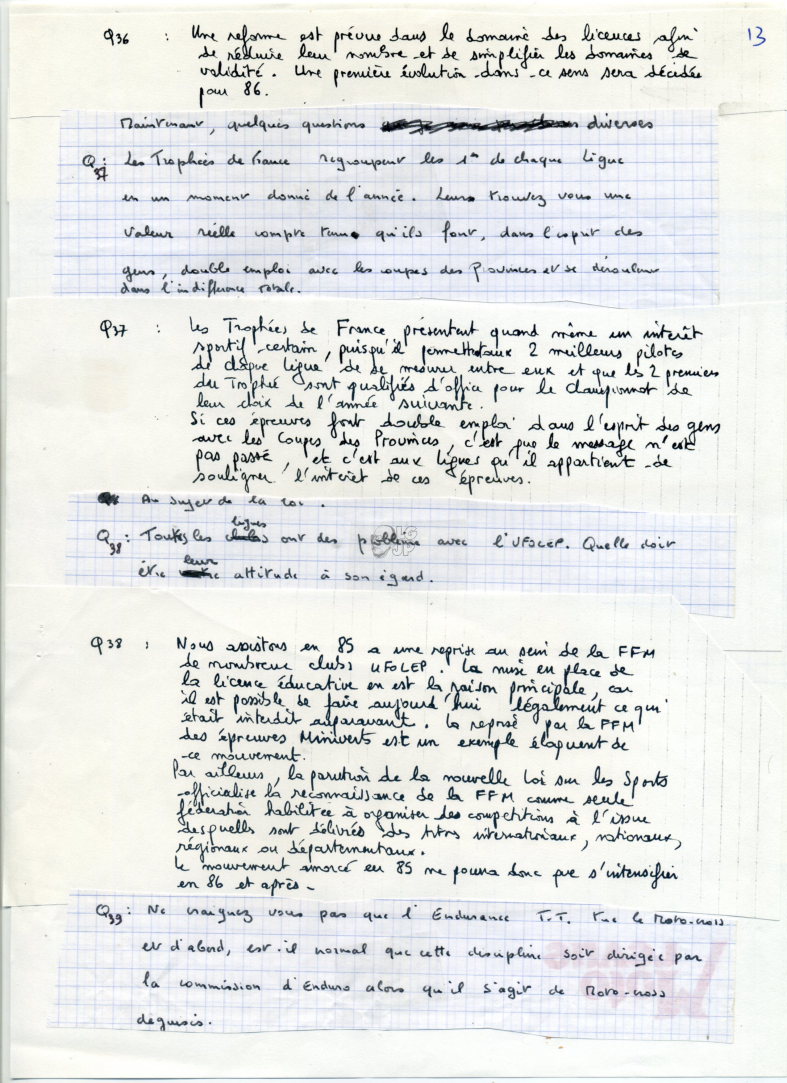 13
Q36 : Une reforme est prévue dans le domaine des licences afin
de réduire leur nombre et de simplifier les domaines de
validité. Une première évolution dans ce sens sera décidée
pour 86.
Maintenant, quelques questions diverses
Q37 : Les Trophées de France regroupent les 1er de chaque Ligue
en un moment donné de l'année. Leurs trouvez vous une
valeur réelle compte tenu qu'ils font, dans l'esprit des
gens, double emploi avec les coupes des Provinces et se dérouler
dans l'indifférence totale.
Q37 : Les Trophées de France présentent quand même un intérêt
sportif certain, puisqu'il permettent aux 2 meilleurs pilotes
de chaque ligue de se mesurer entre eux et que les 2 premiers
du Trophée sont qualifiés d'office pour le championnat de
leur choix de l'année suivante.
Si ces épreuves font double emploi dans l'esprit des gens
avec les Coupes des Provinces, c'est que le message n'est
pas passé, et c'est aux ligues qu'il appartient de
souligner l'intérêt de ces épreuves.
Au sujet de la loi.
Q38 : Toutes les ligues ont des problème avec l'UFOLEP. Quelle doit
être leur attitude à son égard.
Q38 : Nous assistons en 85 a une reprise au sein de la FFM
de nombreux clubs UFOLEP. La mise en place de
la licence éducative en est la raison principale, car
il est possible de faire aujourd'hui légalement ce qui
était interdit auparavant. La reprise par la FFM
des épreuves Miniverts est un exemple éloquent de
ce mouvement.
Par ailleurs, la parution de la nouvelle Loi sur les Sports
officialise la reconnaissance de la FFM comme seule
fédération habilitée à organiser des compétitions à l'issue
desquelles sont délivrés des titres internationaux, nationaux,
régionaux ou départementaux.
Le mouvement amorcé en 85 ne pourra donc que s'intensifier
en 86 et après.
Q39 : Ne craignez vous pas que l'Endurance T.T. tue le Moto-cross
et d'abord, est-il normal que cette discipline soit dirigée par
la commission d'Enduro alors qu'il s'agit de Moto-cross
déguisés.